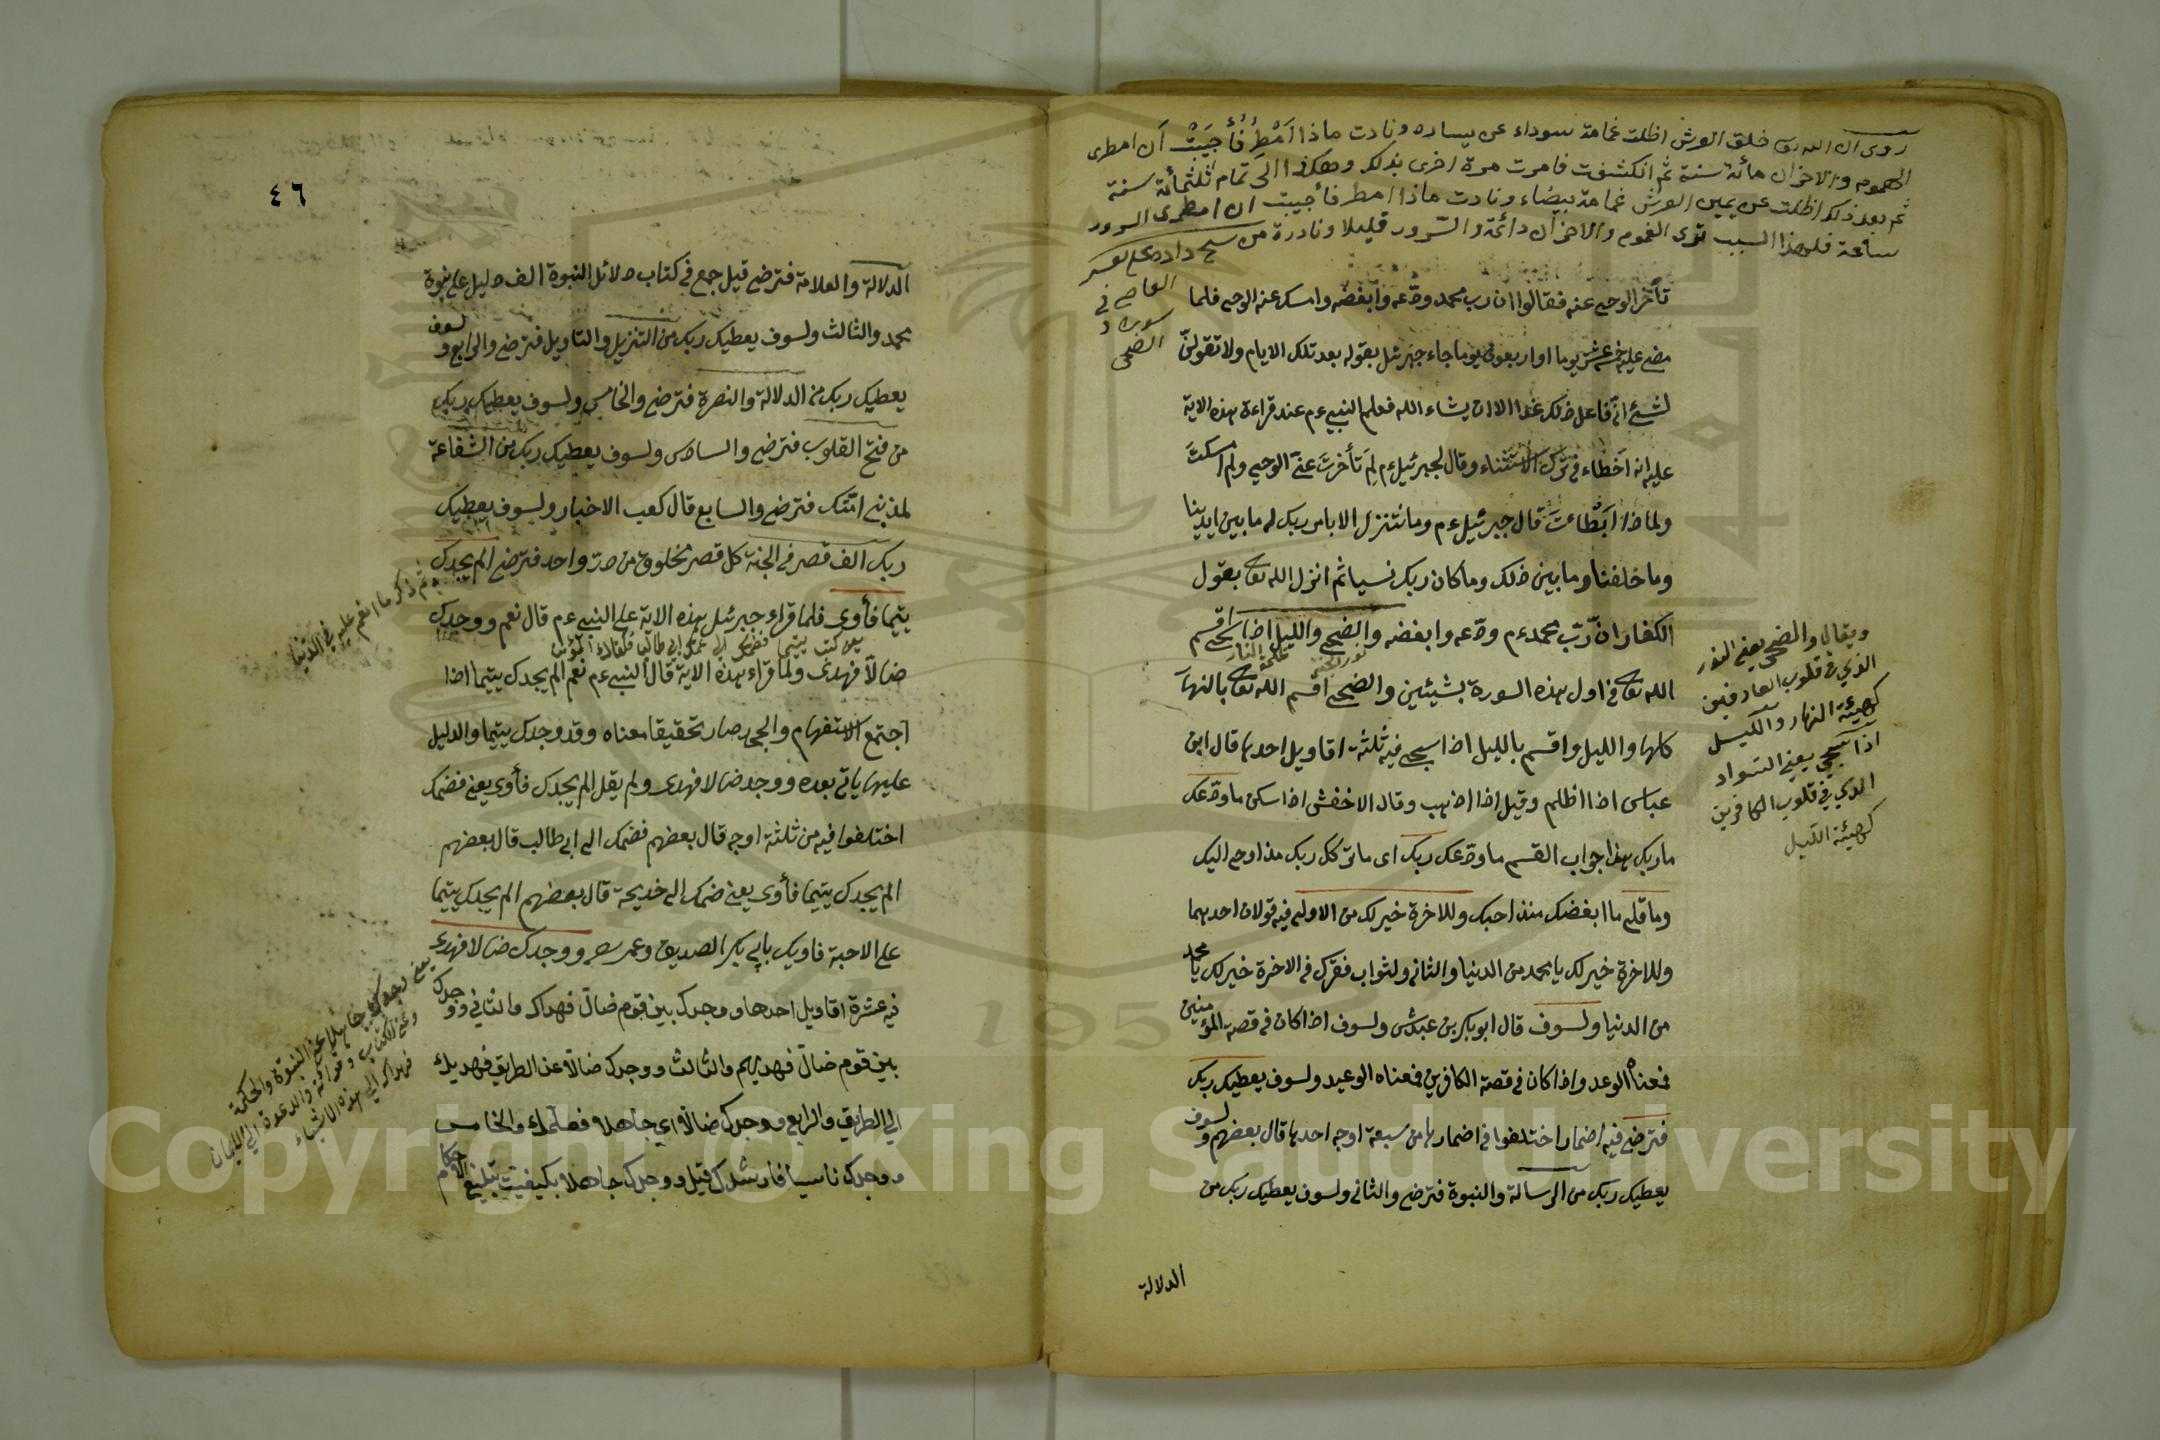 روى ان الله تعالى خلق العرش اظلت غمامة سوداء عن يساره ونادت ماذا اَمْطِرُ فَأُجِيبَتْ اَن امطرى
الهموم والاحزان مائة سنة ثم انكشفت فامرت مرة اخرى بذلك وهكذا الى تمام ثلثمائة سنة
ثم بعد ذلك اظلت عن يمين العرش غمامة بيضاء ونادت ماذا امطر فأجيبت ان امطرى السرور
ساعة فلهذا السبب ترى الغموم والاحزان دائمة والسرور قليلا ونادرة من
في
سورة و
الضحى
تأخر الوحى عنه فقالوا ان رب محمد ودّعه وابغضه وامسك عنه الوحى فلما
مضى عليه خمسة عشر يوما او اربعون يوما جاء جبرئيل بقوله بعد تلك الايام ولا تقولنّ
لشئ انّى فاعل ذلك غدا الا ان يشاء الله فعلم النبى عم عند قراءة هذه الاية
عليه انه اخطاء فى ترك الاستثناء وقال لجبرئيل عم لِمَ تأخرتَ عنّى الوحى ولم امسكتَ
ولماذا ابَطْاءتَ قال جبرئيل عم وما نتنزل الا بامر ربك له ما بين ايدينا
وما خلفنا وما بين ذلك وما كان ربك نسيا ثم انزل الله تعالى بقول
الكفار ان رّبّ محمد عم ودّعه وابغضه والضحى والليل اذا سجى اقسم
نور الجنة
ظلمة النار
الله تعالى فى اول هذه السورة بشيئين والضحى اقسم الله تعالى بالنهار
كلها والليل واقسم بالليل اذا سجى فيه ثلثة اقاويل احدها قال ابن
عباس اذا اظلم وقيل اذا ذهب وقال الاخفش اذا سكن ما ودّعك
ما ربك بهذا جواب القسم ما ودّعك ربك اى ما ترك ربك منذ اوحى اليك
وما قلى ما ابغضك منذ احبك وللاخرة خير لك من الاولى فيه قولان احدهما
وللاخرة خير لك يا محمد من الدنيا والثانى ولثواب فقرك فى الاخرة خير لك يا محمد
من الدنيا ولسوف قال ابو بكر بن عبدش ولسوف اذا كان فى قصة المؤمنين
فمعناه الوعد واذا كان فى قصة الكافرين فمعناه الوعيد ولسوف يعطيك ربك
فترضى فيه اضمار اختلفوا فى اضمارها من سبعة اوجه احدها قال بعضهم ولسوف
يعطيك ربك من الرسالة والنبوة فترضى والثانى ولسوف يعطيك ربك من
الدلالة
ويقال والضحى يعنى النور
الذي في قلوب العارفين
كهيئة النهار والليل
اذا سجى يعنى السواد
الذي في قلوب الكافرين
كهيئة الليل
٤٦
الدلالة والعلامة فترضى قيل جمع فى كتاب دلائل النبوة الف دليل على نبوة
محمد والثالث ولسوف يعطيك ربك من التنزيل والتاويل فترضى والرابع ولسوف
يعطيك ربك من الدلالة والنصرة فترضى والخامس ولسوف يعطيك ربك
من فتح القلوب فترضى والسادس ولسوف يعطيك ربك من الشفاعة
لمذنبى امتك فترضى والسابع قال كعب الاخبار ولسوف يعطيك
ربك الف قصر فى الجنة كل قصر مخلوق من در واحد فترضى الم يجدك
ثم ذكر ما انعم عليه في الدنيا
يتيما فأوى فلما قراء جبرئيل هذه الاية على النبى عم قال نعم ووجدك
يعنى كنت يتيما فضمك الى عمك ابى طالب
ضالا فهدى ولما قراء هذه الاية قال النبى عم نعم الم يجدك يتيما اذا
اجتمع الاستفهام والجحد صار تحقيقا معناه وقد وجدك يتيما والدليل
عليها ياتى بعده ووجد ضالا فهدى ولم يقل الم يجدك فأوى يعنى فضمك
اختلفوا فيه من ثلثة اوجه قال بعضهم فضمك الى ابى طالب قال بعضهم
الم يجدك يتيما فأوى يعنى ضمك الى خديجة قال بعضهم الم يجدك يتيما
على الاحبة فاويك بابي بكر الصديق وعمر ووجدك ضالا فهدى
فيه عشرة اقاويل احدها ووجدك بين قوم ضال فهداك والثاني ووجدك
بين قوم ضال فهديهم والثالث ووجدك ضالا عن الطريق فهديك
الى الطريق والرابع ووجدك ضالا اي جاهلا فعلمك والخامس
ووجدك ناسيا فارشدك قيل ووجدك جاهلا بكيفيت تبليغ الاحكام
يعنى وجدك جاهلا عن النبوة والحكمة
وعن الكتاب وقراءته والدعوة الى الايمان
فهداك الى هذه الاشياء
Copyright © King Saud University
1957